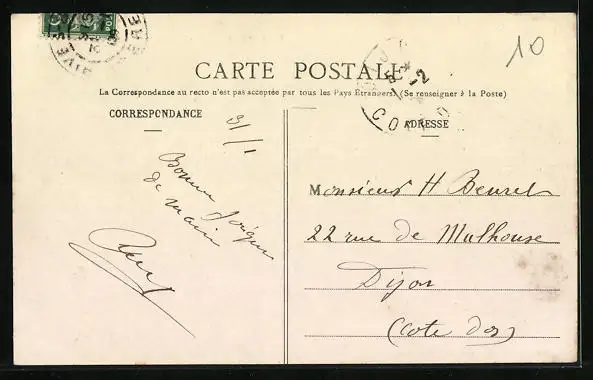 10
CARTE POSTALE
La Correspondance au recto n'est pas acceptée par tous les Pays Étrangers. (Se renseigner à la Poste)
CORRESPONDANCE
ADRESSE
31/1
Bonne
de main
Monsieur H Beuret
22 rue de Mulhouse
Dijon
(Cote d'or)